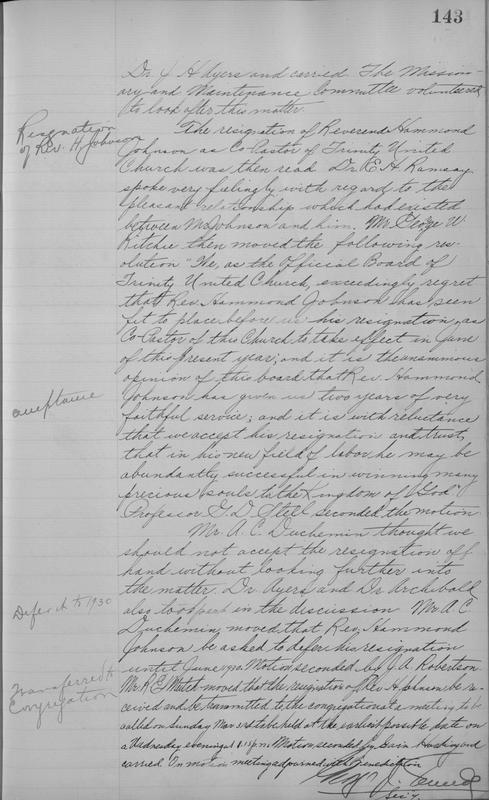 143
Dr. J. H. Ayers and carried The Mission-
ary and Maintenance Committee volunteered
to look after this matter.
Resignation
of Rev. H. Johnson
The resignation of Reverend Hammond
Johnson as Co-Pastor of Trinity United
Church was then read Dr. E. H. Ramsay
spoke very feelingly with regard to the
pleasant relationship which had existed
between Mr. Johnson and him. Mr. George W.
Ritchie then moved the following res-
olution "We, as the Official Board of
Trinity United Church, exceedingly regret
that Rev. Hammond Johnson has seen
fit to place before us his resignation, as
Co-Pastor of this Church to take effect in June
of this present year; and it is the unanimous
opinion of this board that Rev. Hammond
Johnson has given us two years of very
acceptance
faithful service; and it is with reluctance
that we accept his resignation and trust,
that in his new field of labor he may be
abundantly successful in winning many
precious souls to the Kingdom of God"
Professor G. D. Steel seconded the motion.
Mr. A. C. Duchemin thought we
should not accept the resignation off
hand without looking further into
the matter. Dr. Ayers and Dr. Archibald
Defer it to 1930
also took part in the discussion Mr. A. C.
Duchemin moved that Rev. Hammond
Johnson be asked to defer his resignation
until June 1930. Motion seconded by J. A. Robertson.
Transferred to
Congregation
Mr. R. E. Mutch moved that the resignation of Rev. H Johnson be re-
ceived and be transmitted to the congregation at a meeting to be
called on Sunday Mar 3rd to be held at the earliest possible date on
a Wednesday evening at 8.15 p.m. Motion seconded by and
carried On motion meeting adjourned with Benediction
Sec'y.